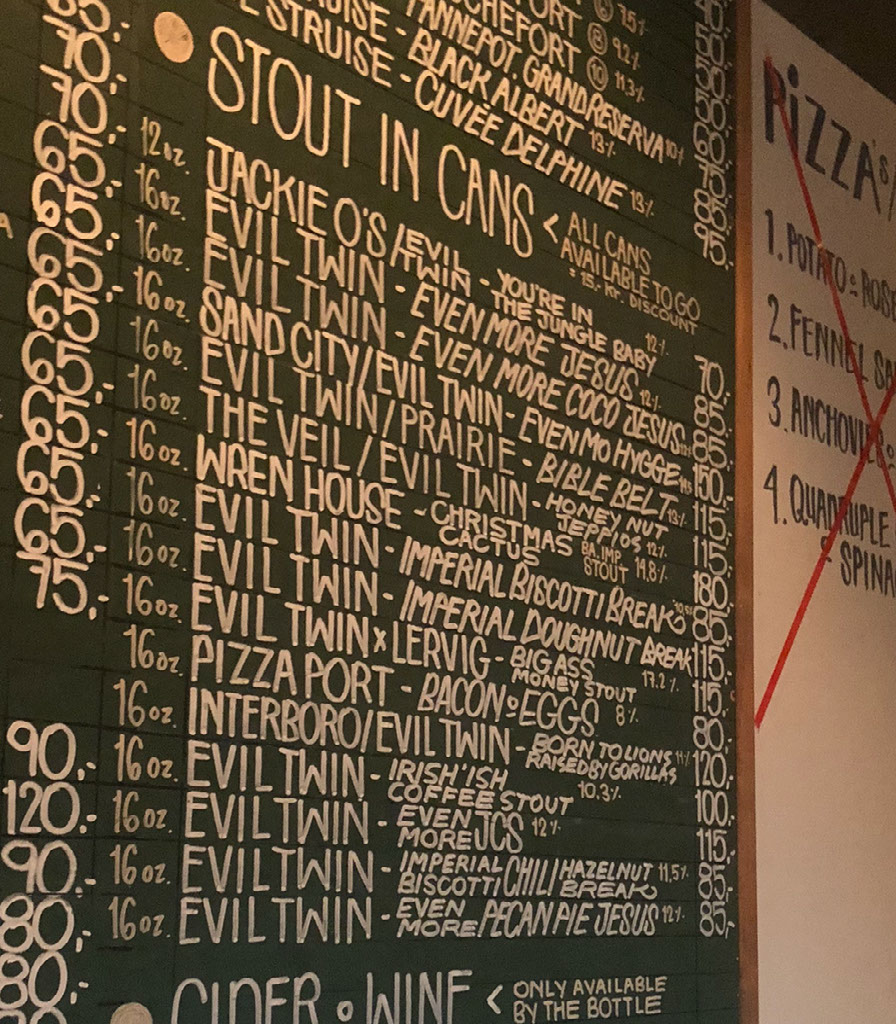 70.-
70.-
65.-
65.-
65.-
65.-
65.-
65.-
65.-
65.-
75.-
90.-
120.-
90.-
80.-
80.-
PORT 6 7.5%
CHEFORT 8 9.2%
10 11.3%
PANNEPOT. GRANDRESERVA 10%
BLACK ALBERT 13%
STRUISE - CUVÉE DELPHINE 13%
STOUT IN CANS < ALL CANS
AVAILABLE TO GO
15,- KR. DISCOUNT
12oz. JACKIE O'S/EVIL TWIN - YOU'RE IN THE JUNGLE BABY 12% 70.-
16oz. EVIL TWIN - EVEN MORE JESUS 12% 85.-
16oz. EVIL TWIN - EVEN MORE COCO JESUS 85.-
16oz. SAND CITY/EVIL TWIN - EVEN MO HYGGE 150.-
16oz. EVIL TWIN/PRAIRIE - BIBLE BELT 13% 115.-
16oz. THE VEIL/EVIL TWIN - HONEY NUT JEPPIOS 12% 115.-
16oz. WREN HOUSE - CHRISTMAS CACTUS BA.IMP. STOUT 14.8% 180.-
16oz. EVIL TWIN - IMPERIAL BISCOTTI BREAK 85.-
16oz. EVIL TWIN - IMPERIAL DOUGHNUT BREAK 115.-
16oz. EVIL TWIN x LERVIG - BIG ASS MONEY STOUT 17.2% 115.-
16oz. PIZZA PORT - BACON & EGGS 8% 80.-
16oz. INTERBORO/EVIL TWIN - BORN TO LIONS RAISED BY GORILLAS 11% 120.-
16oz. EVIL TWIN - IRISH'ISH COFFEE STOUT 10.3% 100.-
16oz. EVIL TWIN - EVEN MORE JCS 12% 115.-
16oz. EVIL TWIN - IMPERIAL BISCOTTI CHILI HAZELNUT BREAK 11,5% 85.-
16oz. EVIL TWIN - EVEN MORE PECAN PIE JESUS 12% 85.-
CIDER & WINE < ONLY AVAILABLE
BY THE BOTTLE
PiZZA'S
1. POTATO &
2. FENNEL
3. ANCHOVIES
4. QUADRUPLE